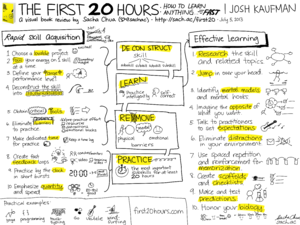 THE FIRST 20 HOURS: HOW TO LEARN
ANYTHING FAST
JOSH KAUFMAN
A visual book review by Sacha Chua (@sachac) - http://sach.ac/first20
July 5, 2013
Rapid Skill Acquisition
1. Choose a lovable project
2. Focus your energy on 1 skill
at a time
3. Define your target
performance level
4. Deconstruct the skill
into
5. Obtain critical tools
6. Eliminate barriers
to practice
7. Make dedicated time
for practice
8. Create fast
feedback loops
9. Practice by the clock
in short bursts
10. Emphasize quantity
and speed
DECONSTRUCT
skill
LEARN
REMOVE
physical
mental
emotional
barriers
PRACTICE
for at least 20
hours
Effective Learning
1. Research the skill
and related topics
2. Jump in over your head
3. Identify mental models
and mental hooks
4. Imagine the opposite
of what you want
5. Talk to practitioners
to set expectations
6. Eliminate distractions
in your environment
7. Use spaced repetition
and reinforcement for
memorization
8. Create scaffolds
and checklists
9. Make and test
predictions
10. Honor your biology
Practical examples:
yoga
programming
typing
Go
ukulele
wind
surfing
first20hours.com